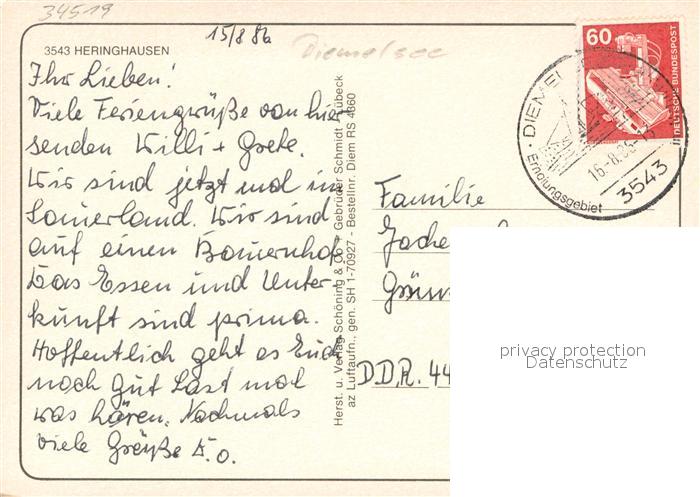 34519
15/8 86
Diemelsee
3543 HERINGHAUSEN
Ihr Lieben!
Viele Feriengrüße von hier
senden Willi + Grete.
Wir sind jetzt mal im
Sauerland. Wir sind
auf einen Bauernhof
Das Essen und Unter-
kunft sind prima.
Hoffentlich geht es Euch
noch gut Last mal
was hören. Nochmals
viele Grüße D.o.
Herst. u. Verlag Schöning & Co + Gebrüder Schmidt - Lübeck
az Luftaufn., gen. SH 1-70927 - Bestellnr. Diem RS 4860
60
DEUTSCHE BUNDESPOST
DIEMEL
16.-8.86
3543
Erholungsgebiet
Familie
Joche
Grün
DDR. 44
privacy protection
Datenschutz